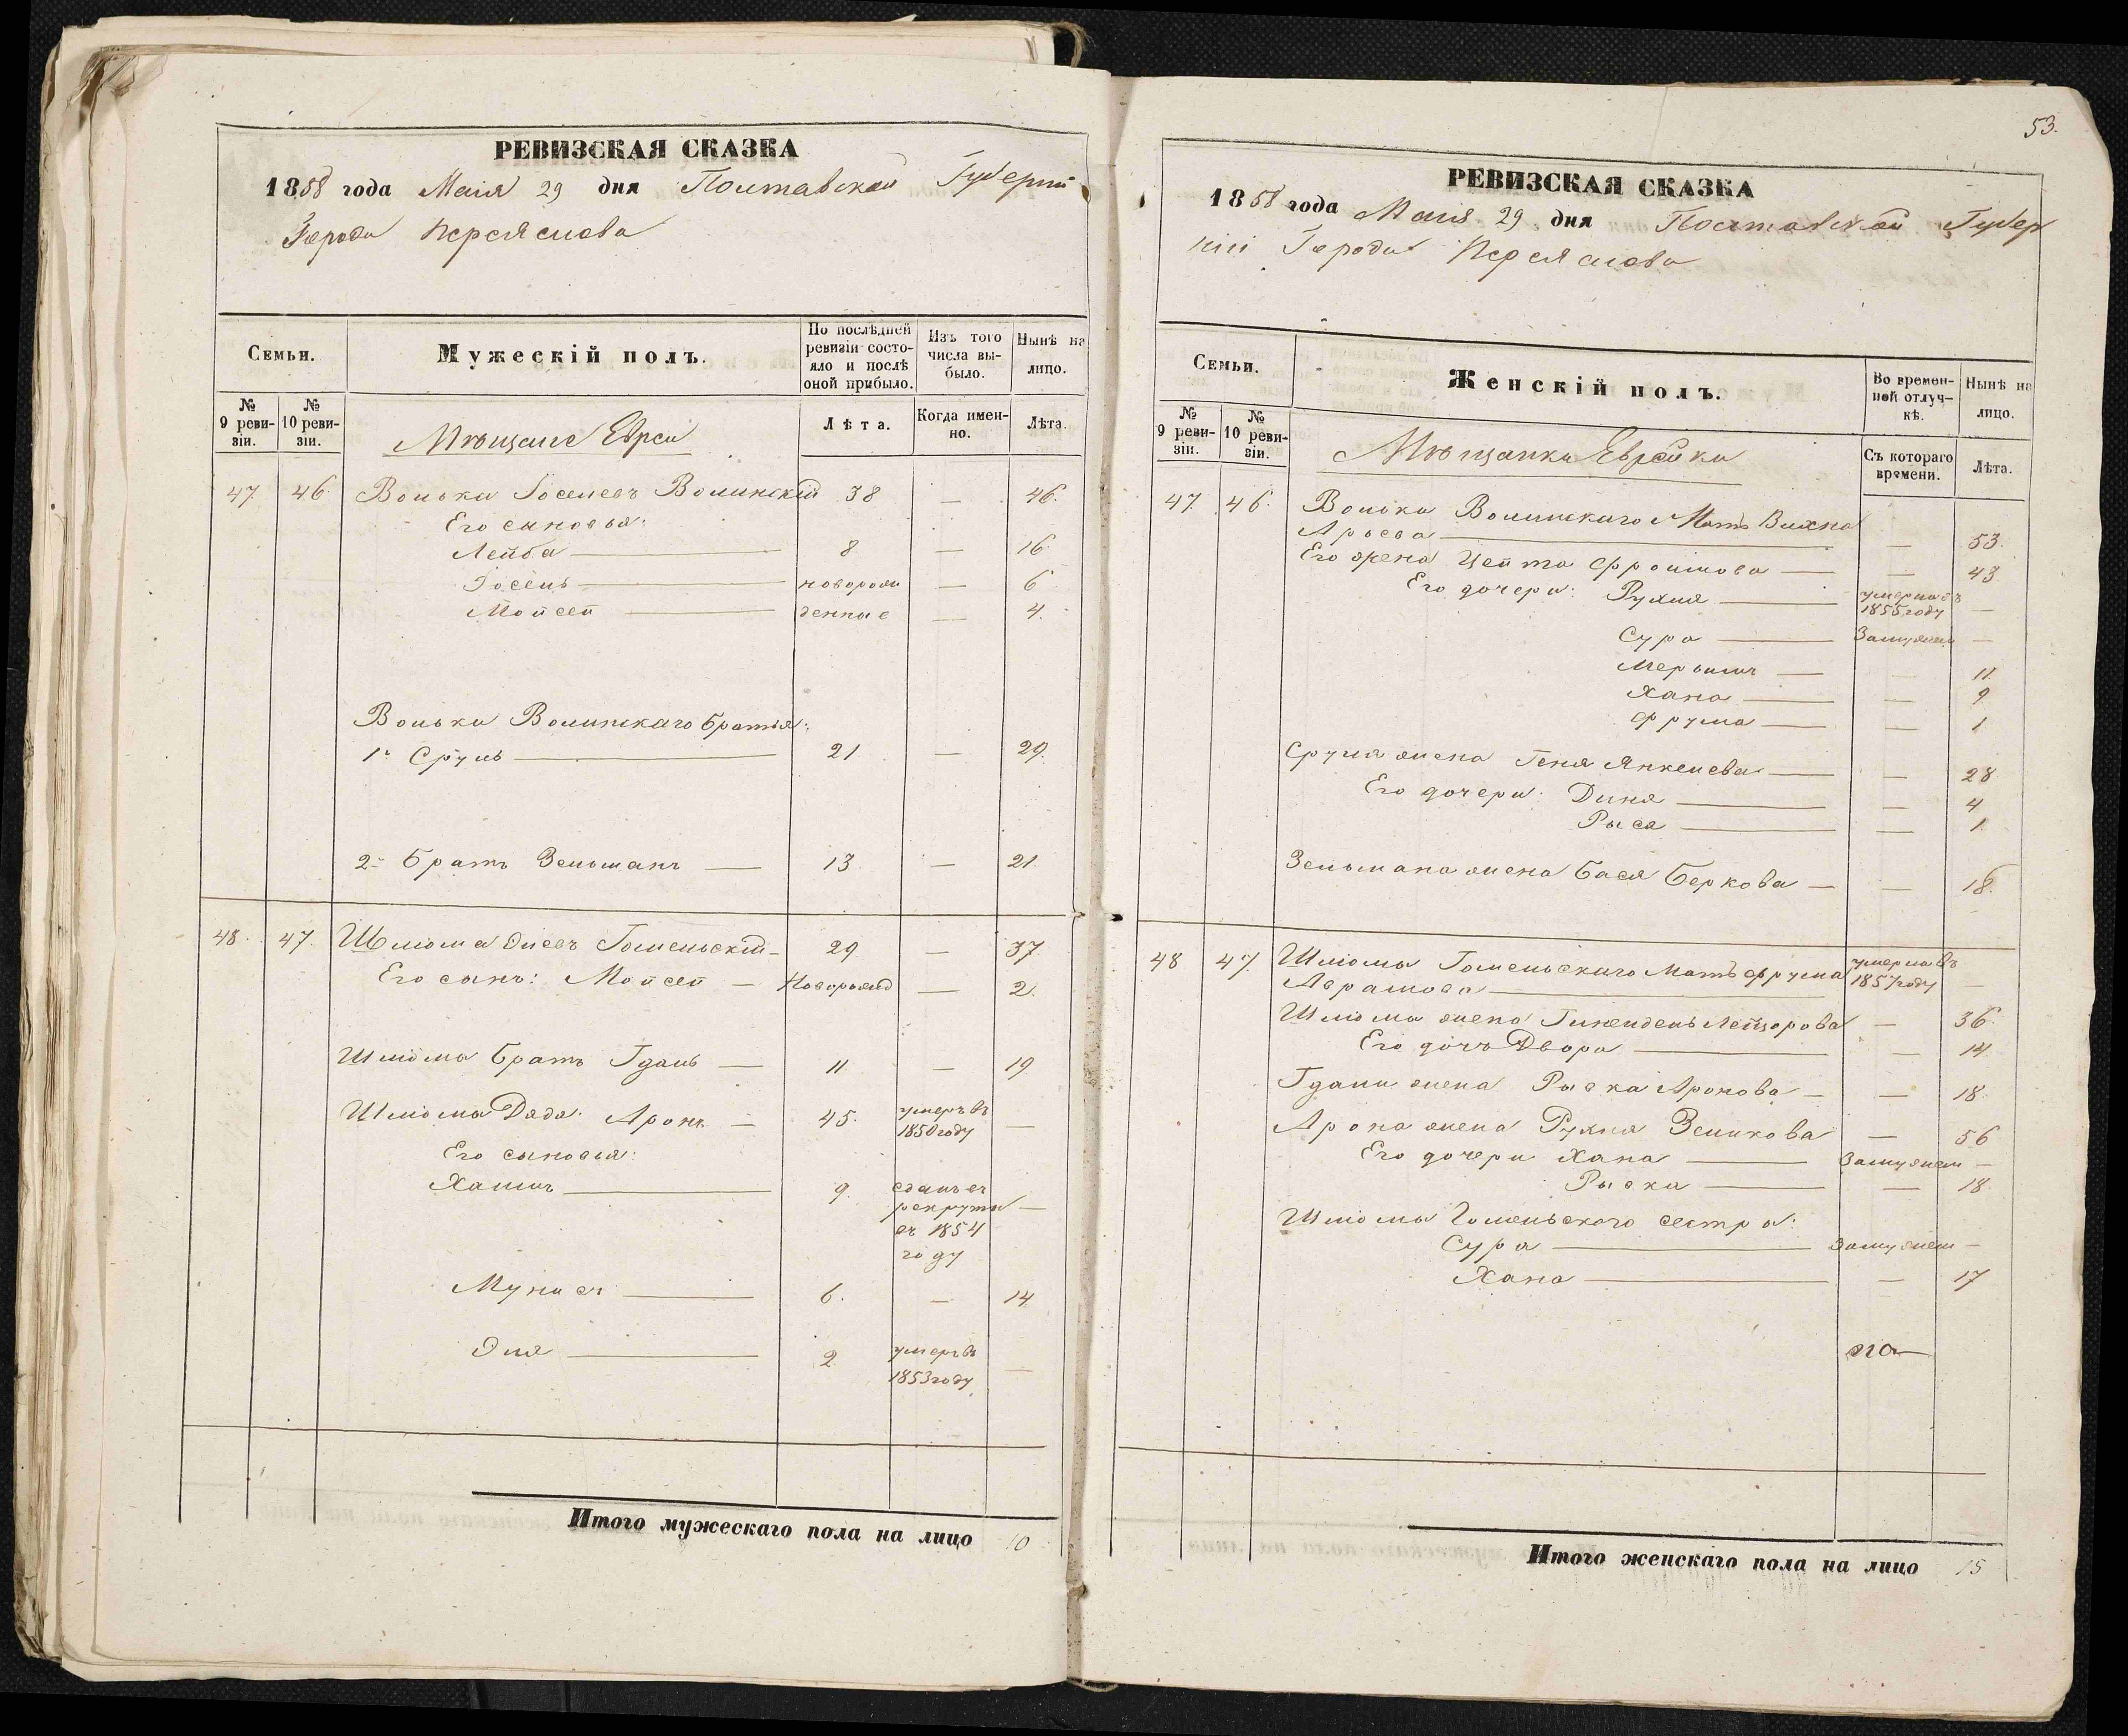 РЕВИЗСКАЯ СКАЗКА
1858 года Маія 29 дня Полтавской Губерніи
Города Переяслова
Семьи.
Мужескій полъ.
По послѣдней ревизіи состояло и послѣ оной прибыло.
Изъ того числа выбыло.
Нынѣ на лицо.
№ 9 ревизіи.
№ 10 ревизіи.
Мѣщане Евреи
Лѣта.
Когда именно.
Лѣта.
47. 46. Волька Іоселевъ Волинскій 38 — 46.
Его сыновья:
Лейба — 8 — 16.
Іосель — новорож — 6
Мойсей — денные — 4.
Волька Волинскаго братья:
1й Сруль — 21 — 29.
2й братъ Зельманъ — 13 — 21
48. 47. Шліома Элевъ Гомельскій 29 — 37.
Его сынъ: Мойсей — Новорожд — 2.
Шліомы братъ Гдаль — 11 — 19
Шліомы Дядя: Аронъ — 45. умеръ въ —
1850 году
Его сыновья:
Хаимъ — 9. сданъ въ
рекруты —
въ 1854
году
Мунисъ — 6. — 14.
Эля — 2 умеръ въ —
1853 году
Итого мужескаго пола на лицо 10
53.
РЕВИЗСКАЯ СКАЗКА
1858 года Маія 29 дня Полтавской Губер
ніи Города Переяслова
Семьи.
Женскій полъ.
Во временной отлучкѣ.
Нынѣ на лицо.
№ 9 ревизіи.
№ 10 ревизіи.
Мѣщанки Еврейки
Съ котораго времени.
Лѣта.
47. 46. Волька Волинскаго Мать Вихна
Арьева — — 53.
Его жена Цейта Фроимова — — 43
Его дочери: Рухля — умерла въ —
1855 году
Сура — Замужем —
Мерьимъ — — 11.
Хана — — 9
Фрума — — 1
Сруля жена Геня Янкелева — — 28
Его дочери: Диня — — 4
Рыся — — 1.
Зельмана жена Бася Беркова — — 18.
48 47. Шліомы Гомельскаго Мать Фрума умерла въ
Аврамова — 1857 году —
Шліома жена Лейзорова — 36.
Его дочъ Двора — — 14
Гдали жена Рывка Аронова — — 18.
Арона жена Рухля Зеликова — 56
Его дочери Хана — Замужем —
Рывка — — 18
Шліомы Гомельскаго сестра:
Сура — Замужем —
Хана — — 17
Итого женскаго пола на лицо 15